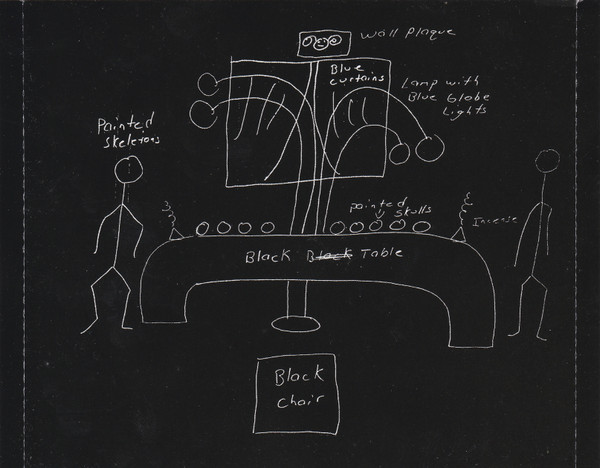 Wall Plaque
Blue
curtains
Lamp with
Blue Globe
Lights
Painted
Skeletons
painted
skulls
Incense
Black Black Table
Black
Chair